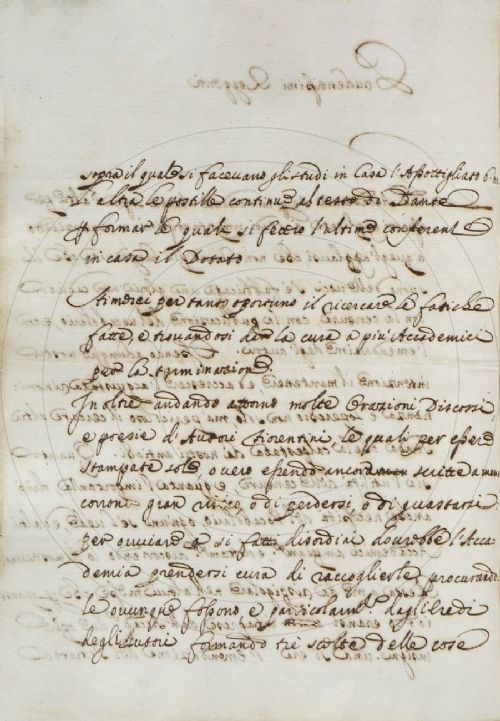 sopra il quale si facevano gli studi in Casa l'Assottigliato
l'altra le postille continue al testo di Dante
formar le quale si fecero l'ultime conferenze
in casa il Dorato
Stimerei per tanto oportuno il ricercare le fatiche
fatte, e trovandosi dar la cura a più Accademici
per la terminazione
In oltre andando attorno molte Orazioni Discorsi
e poesie d'Autori Fiorentini le quali per essere
stampate sole overo essendo ancora scritte a mano
corrono gran risico, o di perdersi, o di guastarsi
per ovviare a si fatti disordini dovrebbe l'Acca=
demia prendersi cura di raccoglierle, procurando
le ovunque fossono e particolarm.te dagli eredi
degli Autori formando tre scelte delle cose